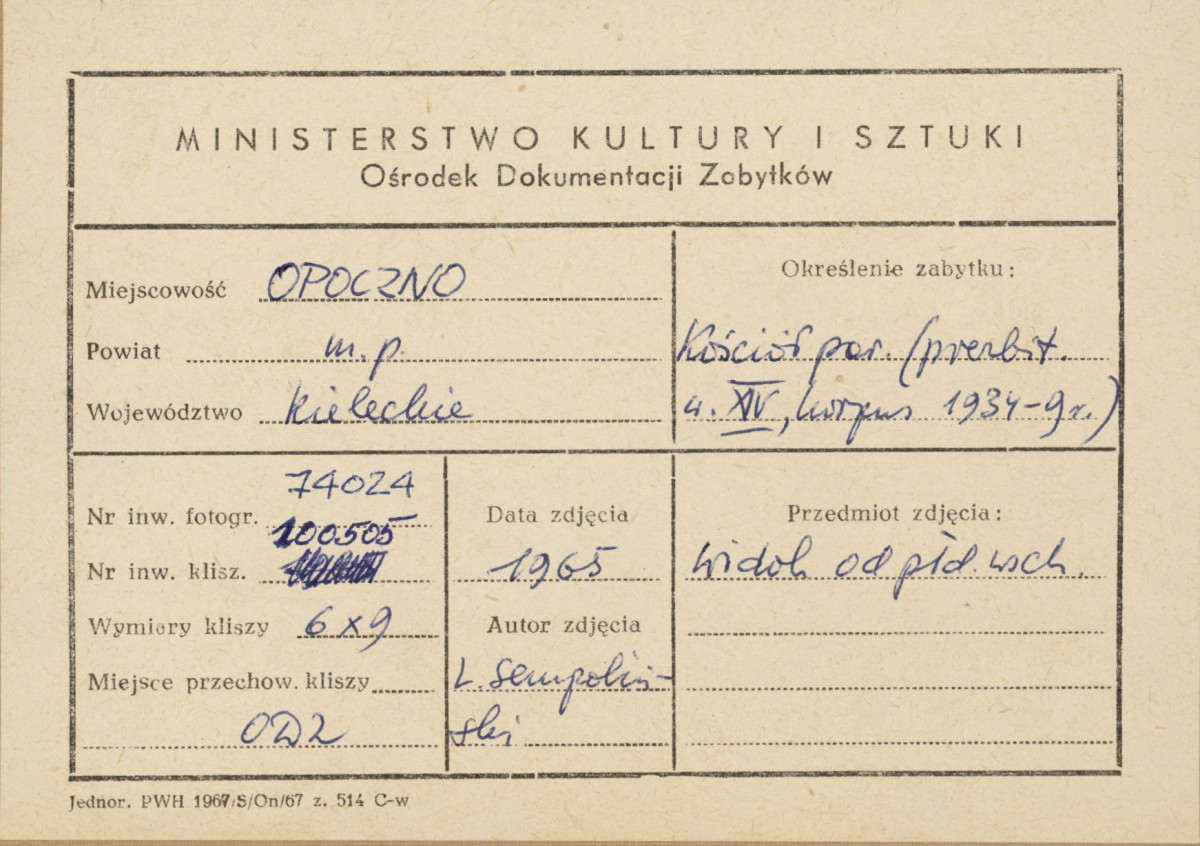 MINISTERSTWO KULTURY I SZTUKI
Ośrodek Dokumentacji Zabytków
Miejscowość OPOCZNO
Powiat m.p.
Województwo kieleckie
Określenie zabytku:
Kościół par. (prezbit.
u. XIV, korpus 1934-9r.)
74024
Nr inw. fotogr.
100505
Nr inw. klisz.
Wymiary kliszy 6x9
Miejsce przechow. kliszy
ODZ
Data zdjęcia
1965
Autor zdjęcia
L. Sempoliń-
ski
Przedmiot zdjęcia:
widok od płd. wsch.
Jednor. PWH 1967/S/On/67 z. 514 C-w